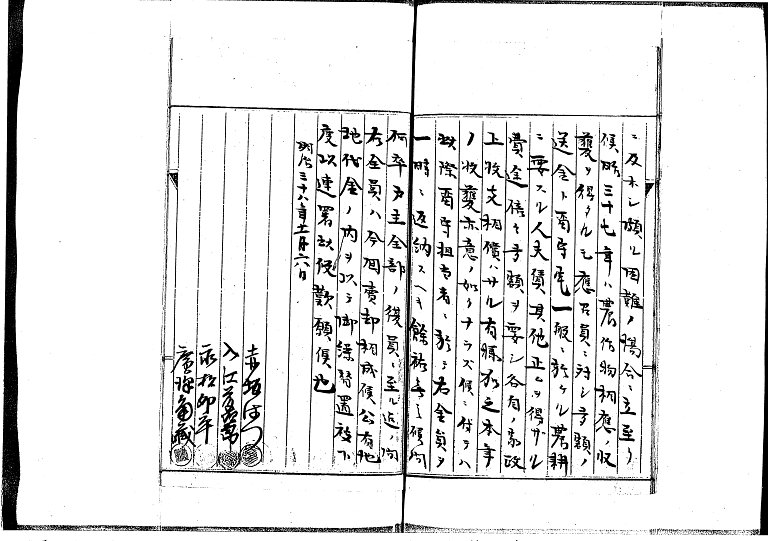 ニ及ホシ頗ル困難ノ場合ニ立至リ
候時三十七年ハ農作物相應ノ収
穫ヲ得タルモ應召員ニ対シ多額ノ
送金ト留守宅一般ニ於ケル農耕
ニ要スル人夫賃其他止ムヲ得サル
費途信々多額ヲ要シ各自ノ家政
上收支相償ハサル有様加之本年
ノ收穫亦意ノ如クナラズ候ニ付テハ
此際留守担当者ニ於テ右金員ヲ
一時ニ返納スヘキ餘裕無之候間
何卒戸主全部ノ後員ニ至ル迄ノ間
右金員ハ今回賣却相成候公有地
地代金ノ内ヲ以テ御繰替置被下
度以連署此段歎願候也
明治三十八年十一月六日
赤
入江
永松卯平
藏